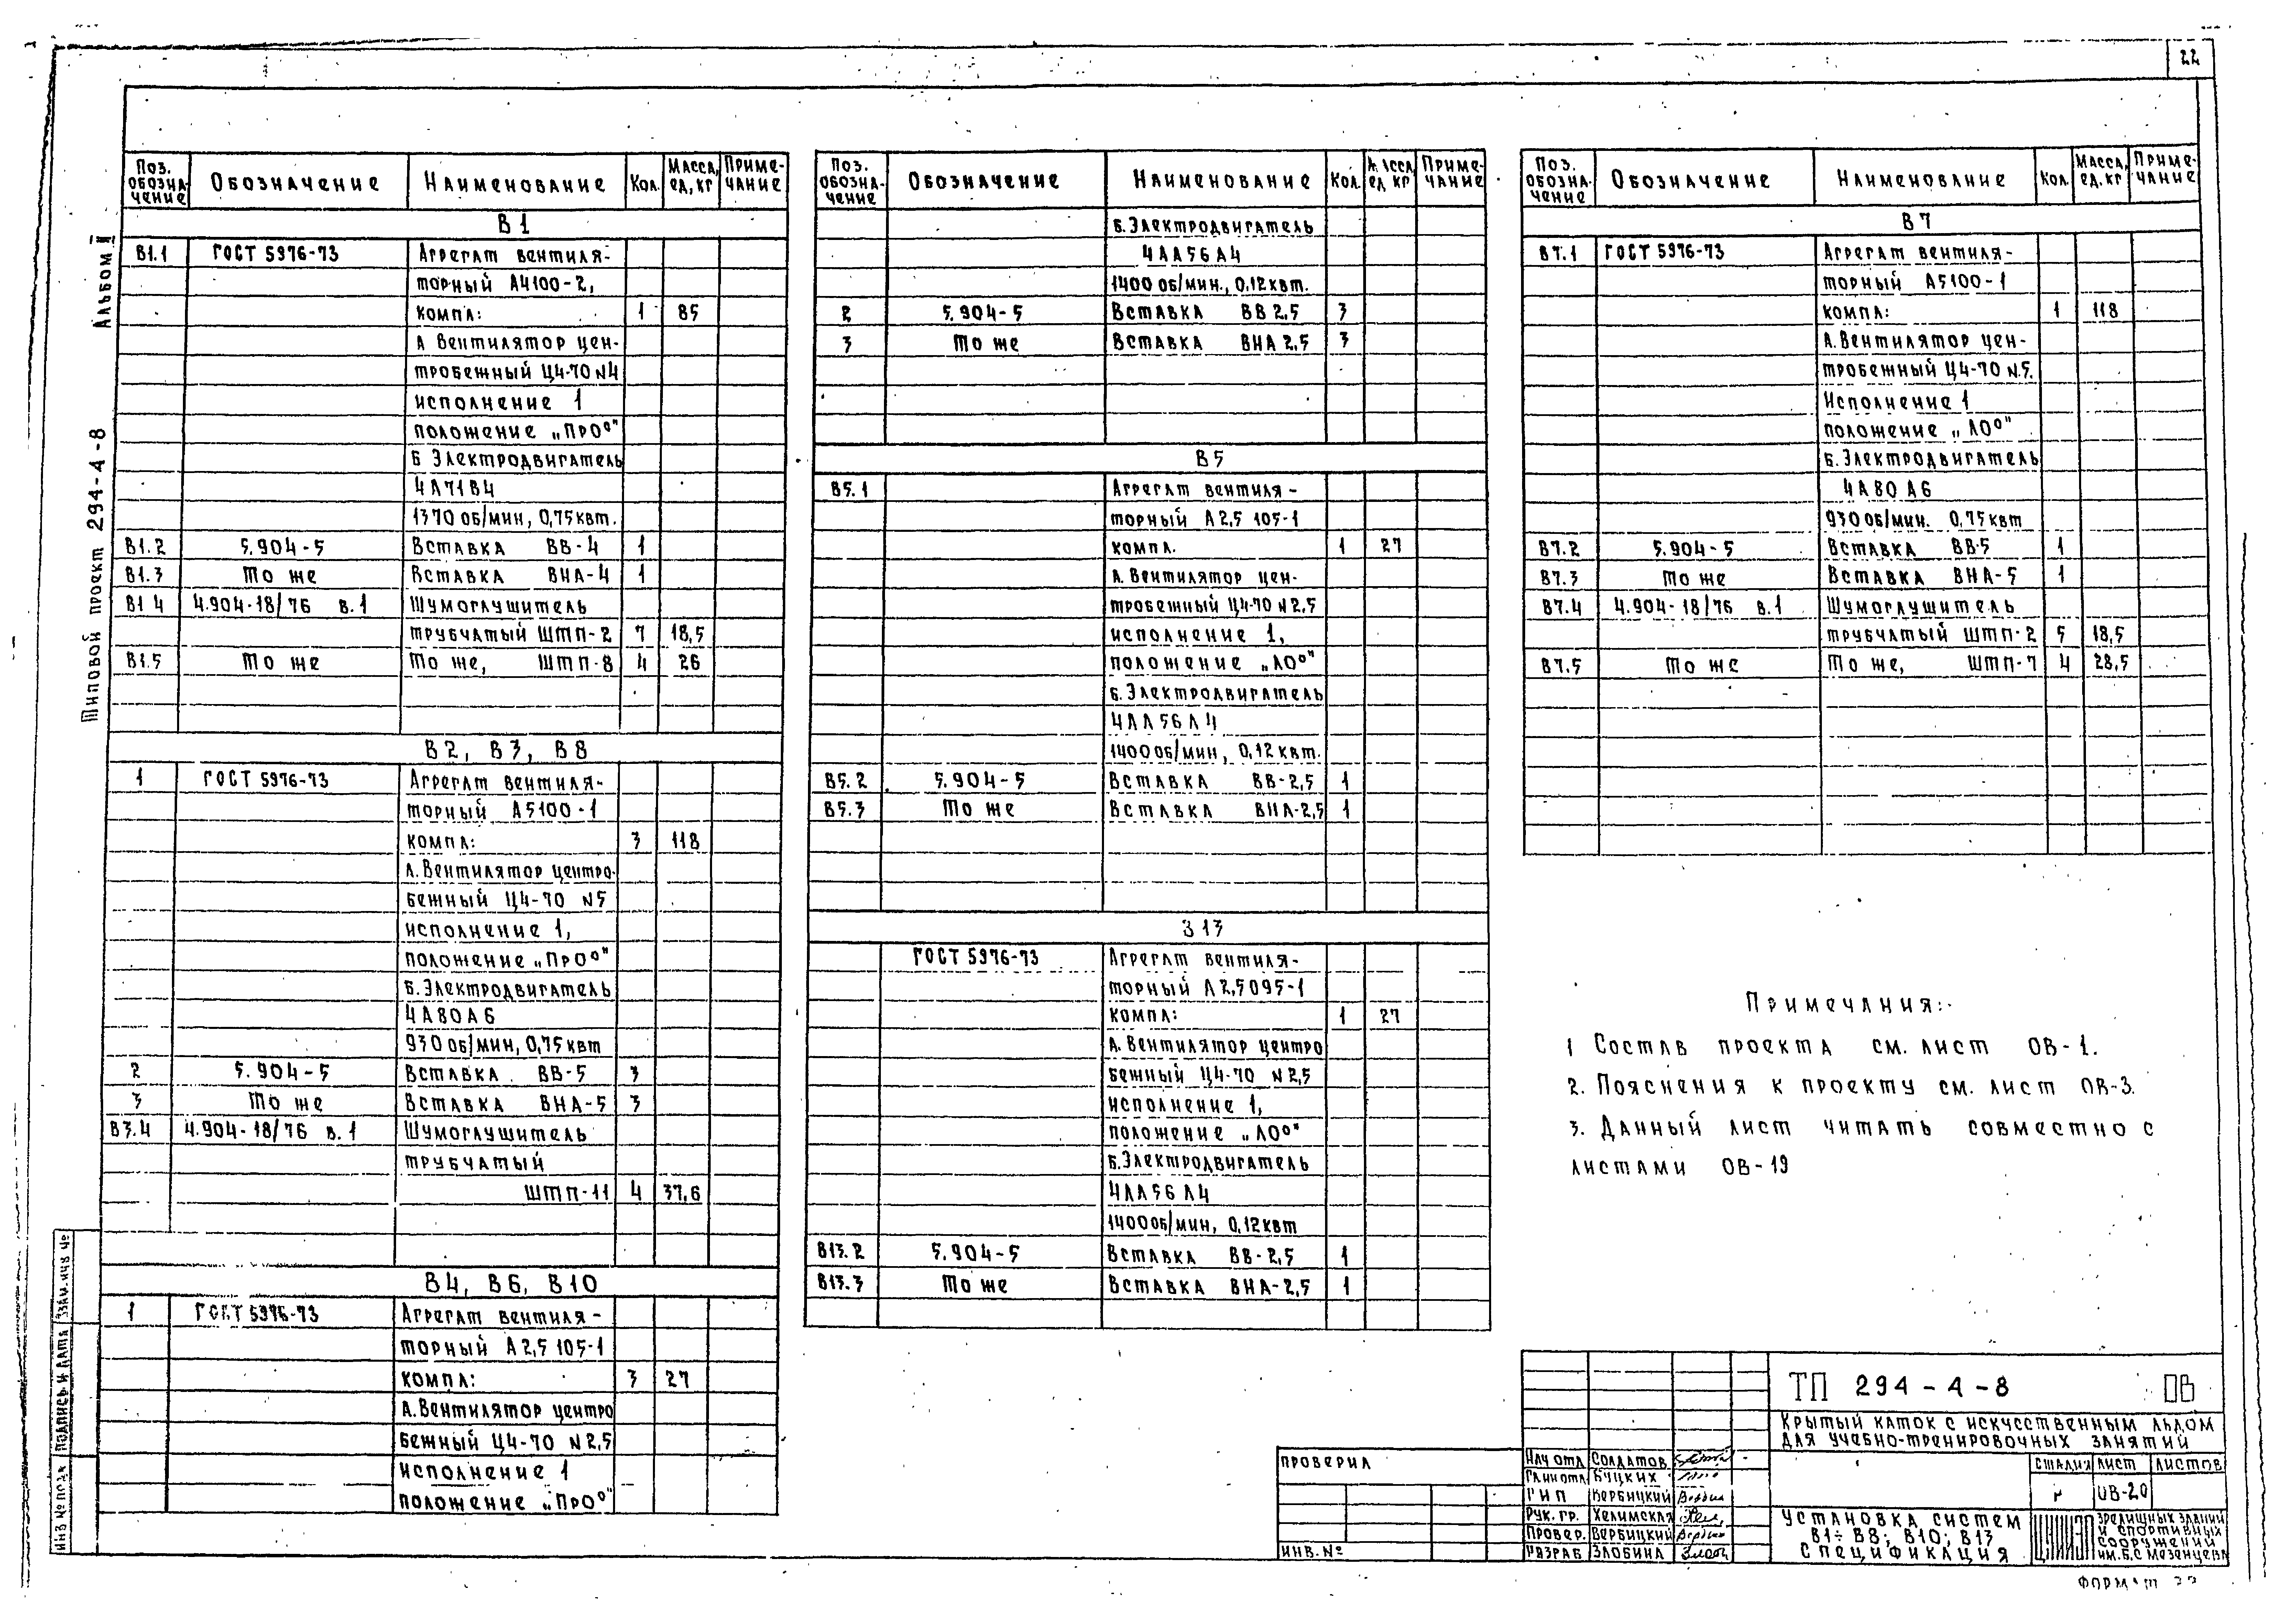 22
Альбом II
Типовой проект 294-4-8
Поз. обозначение Обозначение Наименование Кол. Масса, ед, кг Примечание
В1
В1.1 ГОСТ 5976-73 Агрегат вентиля-
торный А4100-2,
компл: 1 85
А Вентилятор цен-
тробежный Ц4-70 N4
исполнение 1
положение „Пр0°"
Б Электродвигатель
4А71В4
1370 об/мин, 0,75квт.
В1.2 5.904-5 Вставка ВВ-4 1
В1.3 То же Вставка ВНА-4 1
В1 4 4.904-18/76 в.1 Шумоглушитель
трубчатый ШТП-2 7 18,5
В1.5 То же То же, ШТП-8 4 26
В2, В3, В8
1 ГОСТ 5976-73 Агрегат вентиля-
торный А5100-1
компл: 3 118
А. Вентилятор центро-
бежный Ц4-70 N5
исполнение 1,
положение „Пр0°"
Б. Электродвигатель
4А80А6
930 об/мин, 0,75квт
2 5.904-5 Вставка ВВ-5 3
3 То же Вставка ВНА-5 3
В3.4 4.904-18/76 в.1 Шумоглушитель
трубчатый
ШТП-11 4 37,6
В4, В6, В10
1 ГОСТ 5976-73 Агрегат вентиля-
торный А2,5 105-1
компл: 3 27
А. Вентилятор центро
бежный Ц4-70 N2,5
исполнение 1
положение „Пр0°"
Поз. обозначение Обозначение Наименование Кол. Масса ед, кг Примечание
Б. Электродвигатель
4АА56А4
1400 об/мин., 0,12квт.
2 5.904-5 Вставка ВВ 2,5 3
3 То же Вставка ВНА 2,5 3
В5
В5.1 Агрегат вентиля-
торный А2,5 105-1
компл. 1 27
А. Вентилятор цен-
тробежный Ц4-70 N2,5
исполнение 1,
положение „Л0°"
Б. Электродвигатель
4АА56А4
1400 об/мин, 0,12 квт.
В5.2 5.904-5 Вставка ВВ-2,5 1
В5.3 То же Вставка ВНА-2,5 1
313
ГОСТ 5976-73 Агрегат вентиля-
торный А2,5095-1
компл: 1 27
А. Вентилятор центро
бежный Ц4-70 N2,5
исполнение 1,
положение „Л0°"
Б. Электродвигатель
4АА56А4
1400 об/мин, 0,12квт
В13.2 5.904-5 Вставка ВВ-2,5 1
В13.3 То же Вставка ВНА-2,5 1
Поз. обозначение Обозначение Наименование Кол. Масса, ед, кг Примечание
В7
В7.1 ГОСТ 5976-73 Агрегат вентиля-
торный А5100-1
компл: 1 118
А. Вентилятор цен-
тробежный Ц4-70 N.5.
Исполнение 1
положение „Л0°"
Б. Электродвигатель
4А80А6
930 об/мин. 0,75квт
В7.2 5.904-5 Вставка ВВ-5 1
В7.3 То же Вставка ВНА-5 1
В7.4 4.904-18/76 в.1 Шумоглушитель
трубчатый ШТП-2 5 18,5
В7.5 То же То же, ШТП-7 4 28,5
Примечания:
1 Состав проекта см. лист ОВ-1.
2. Пояснения к проекту см. лист ОВ-3.
3. Данный лист читать совместно с
листами ОВ-19
ТП 294-4-8 ОВ
Крытый каток с искусственным льдом
для учебно-тренировочных занятий
Стадия Лист Листов
ОВ-20
Установка систем
В1÷В8; В10; В13
Спецификация
зрелищных зданий
и спортивных
сооружений
им. Б.С Мезенцева
Проверил
Инв. №
Нач отд Солдатов
Гл ин отд Буцких
ГИП Вербицкий
Рук. гр. Хелимская
Провер. Вербицкий
Разраб Злобина
Взам. инв №
Подпись и дата
Инв № подл
Формат 22